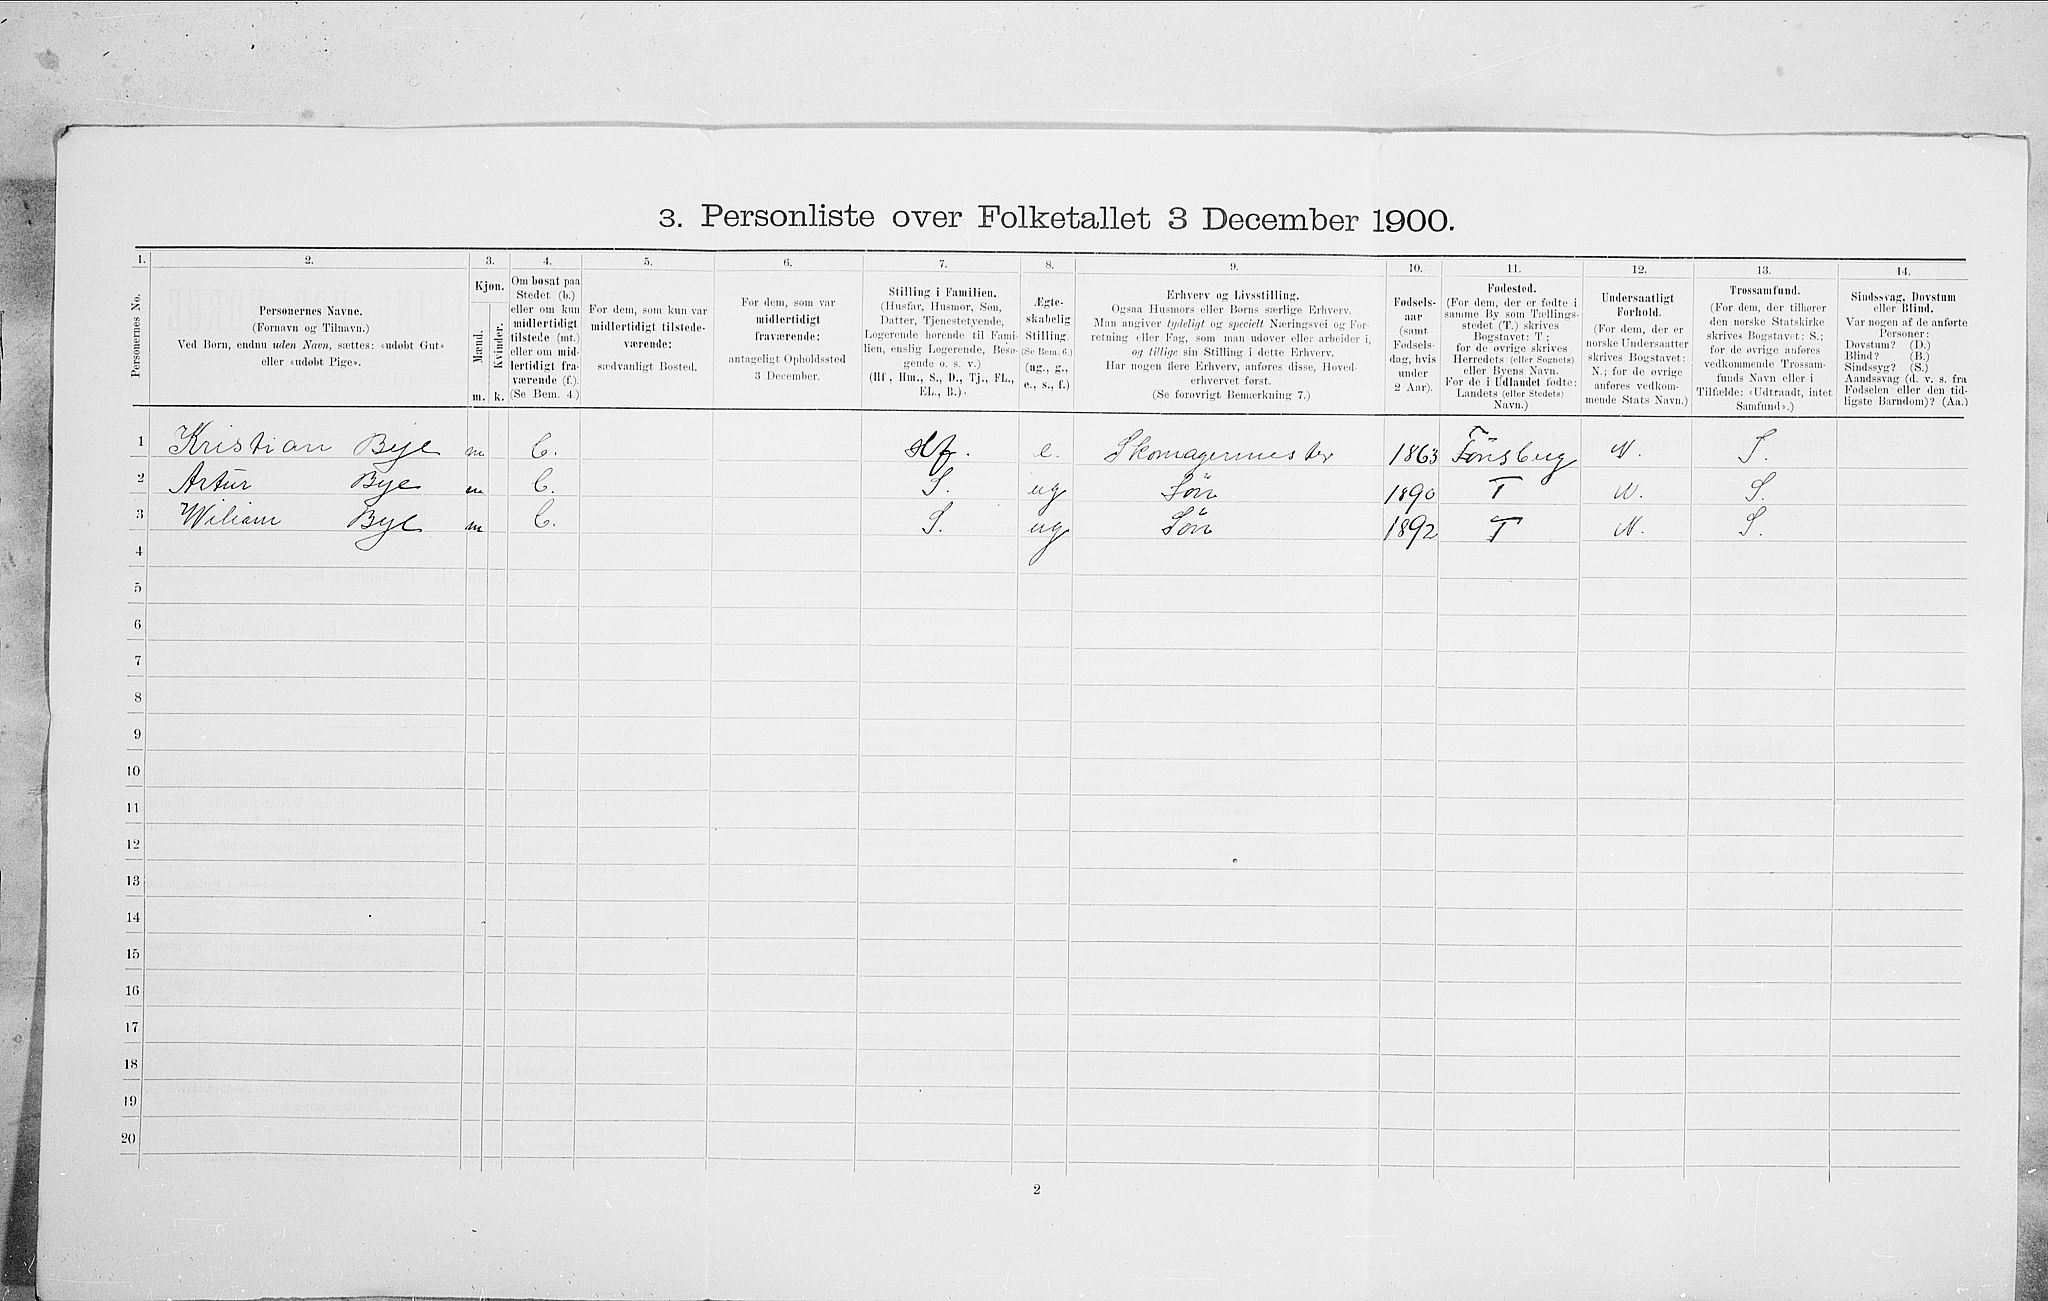 3. Personliste over Folketallet 3 December 1900.
1. 2. 3. 4. 5. 6. 7. 8. 9. 10. 11. 12. 13. 14.
Personernes No.
Personernes Navne.
(Fornavn og Tilnavn.)
Ved Børn, endnu uden Navn, sættes: «udøbt Gut»
eller «udøbt Pige».
Kjøn.
Mænd.
Kvinder.
m. k.
Om bosat paa
Stedet (b.)
eller om kun
midlertidigt
tilstede (mt.)
eller om mid-
lertidigt fra-
værende (f.).
(Se Bem. 4.)
For dem, som kun var
midlertidigt tilstede-
værende:
sædvanligt Bosted.
For dem, som var
midlertidigt
fraværende:
antageligt Opholdssted
3 December.
Stilling i Familien.
(Husfar, Husmor, Søn,
Datter, Tjenestetyende,
Logerende hørende til Fami-
lien, enslig Logerende, Besø-
gende o. s. v.)
(Hf., Hm., S., D., Tj., FL.,
EL., B.).
Ægte-
skabelig
Stilling.
(Se Bem. 6.)
(ug., g.,
e., s., f.)
Erhverv og Livsstilling.
Ogsaa Husmors eller Børns særlige Erhverv.
Man angiver tydeligt og specielt Næringsvei og For-
retning eller Fag, som man udøver eller arbeider i,
og tillige sin Stilling i dette Erhverv.
Har nogen flere Erhverv, anføres disse, Hoved-
erhvervet først.
(Se forøvrigt Bemærkning 7.)
Fødsels-
aar
(samt
Fødsels-
dag, hvis
under
2 Aar).
Fødested.
(For dem, der er fødte i
samme By som Tællings-
stedet (T.) skrives
Bogstavet: T;
for de øvrige skrives
Herredets (eller Sognets)
eller Byens Navn.
For de i Udlandet fødte:
Landets (eller Stedets)
Navn.)
Undersaatligt
Forhold.
(For dem, der er
norske Undersaatter
skrives Bogstavet:
N.; for de øvrige
anføres vedkom-
mende Stats Navn.)
Trossamfund.
(For dem, der tilhører
den norske Statskirke
skrives Bogstavet: S.;
for de øvrige anføres
vedkommende Trossam-
funds Navn eller i
Tilfælde: «Udtraadt, intet
Samfund».)
Sindssvag, Døvstum
eller Blind.
Var nogen af de anførte
Personer:
Døvstum? (D.)
Blind? (B.)
Sindssyg? (S.)
Aandssvag (d. v. s. fra
Fødselen eller den tid-
ligste Barndom)? (Aa.)
1 Kristian Bye m b. Hf. e. Skomagermester 1863 Tönsberg N. S.
2 Artur Bye m b. S. ug Sön 1890 T N. S.
3 Wiliam Bye m b. S. ug Sön 1892 T N. S.
4
5
6
7
8
9
10
11
12
13
14
15
16
17
18
19
20
2